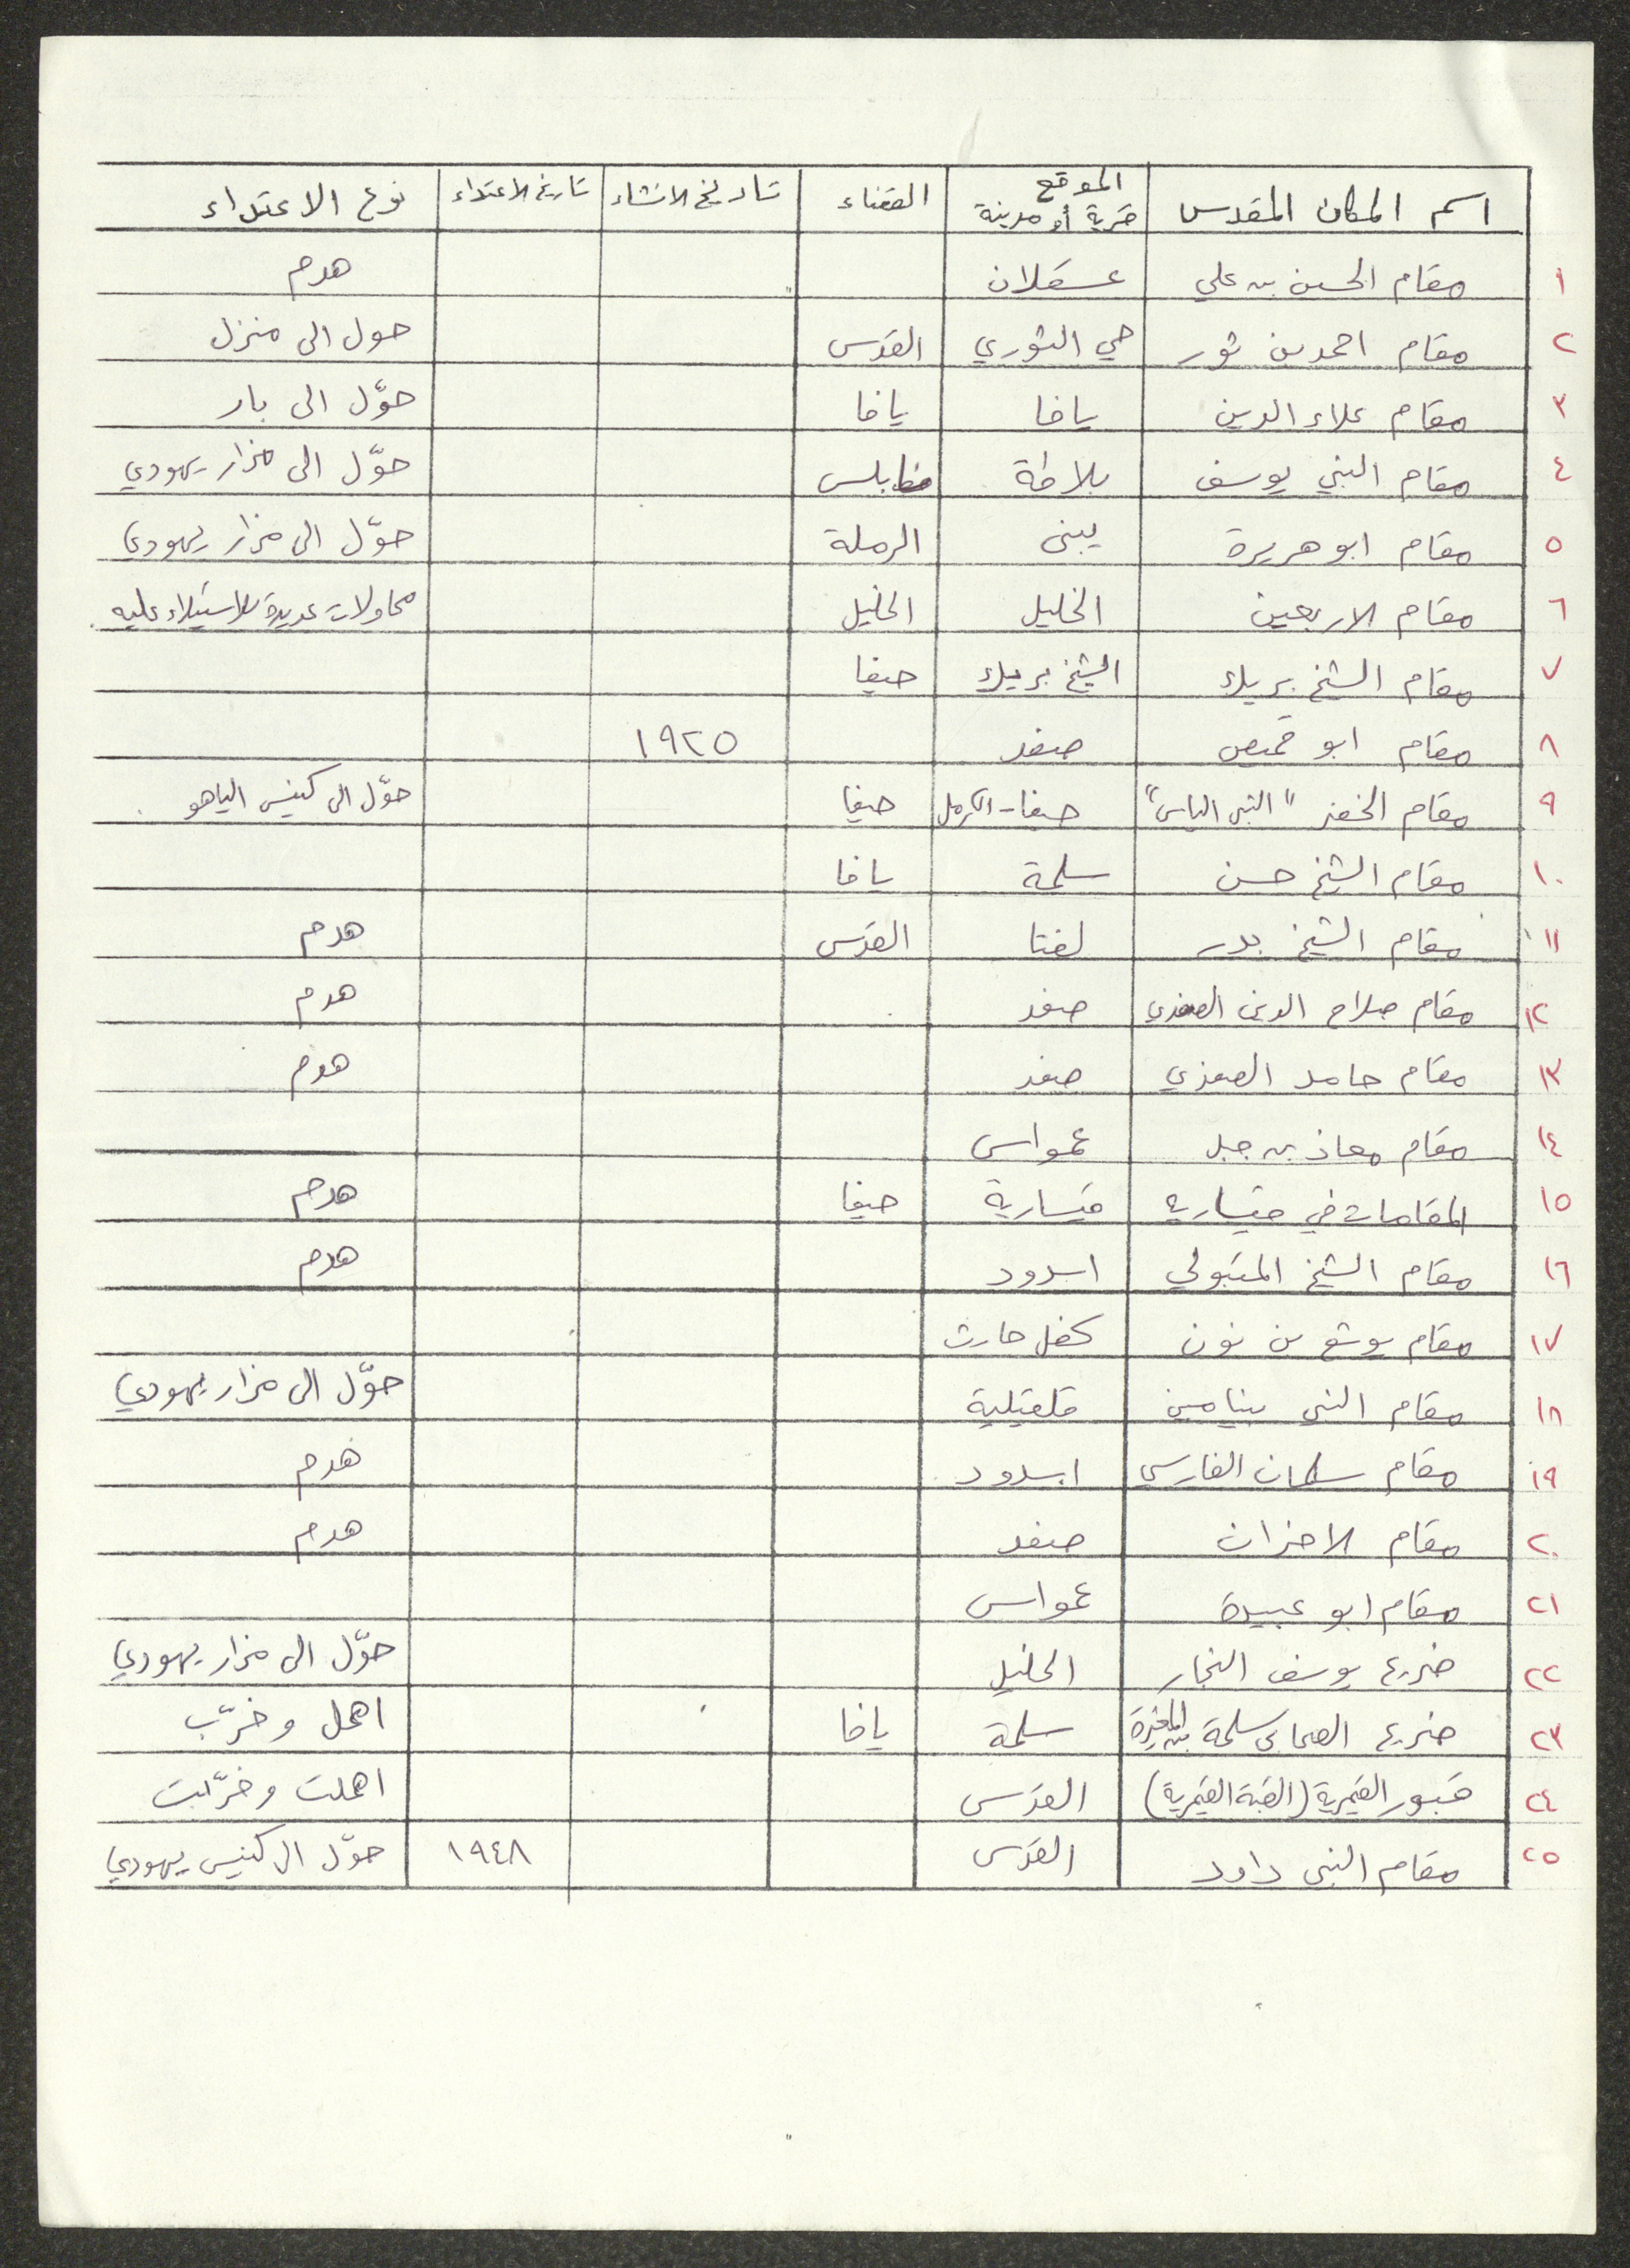 اسم المكان المقدس الموقع قرية أو مدينة القضاء تاريخ الانشاء تاريخ الاعتداء نوع الاعتداء
١ مقام الحسين بن علي عسقلان هدم
٢ مقام احمد بن ثور حي الثوري القدس حول الى منزل
٣ مقام علاء الدين يافا يافا حوّل الى بار
٤ مقام النبي يوسف بلاطة نابلس حوّل الى مزار يهودي
٥ مقام ابو هريرة يبنى الرملة حوّل الى مزار يهودي
٦ مقام الاربعين الخليل الخليل محاولات عديدة للاستيلاء عليه
٧ مقام الشيخ بريك الشيخ بريك حيفا
٨ مقام ابو قميص صفد ١٩٢٥
٩ مقام الخضر "النبي الياس" حيفا - الكرمل حيفا حوّل الى كنيس الياهو
١٠ مقام الشيخ حسن سلمة يافا
١١ مقام الشيخ بدر لفتا القدس هدم
١٢ مقام صلاح الدين الصفدي صفد هدم
١٣ مقام حامد الصفدي صفد هدم
١٤ مقام معاذ بن جبل عمواس
١٥ المقامات في قيسارية قيسارية حيفا هدم
١٦ مقام الشيخ المتبولي اسدود هدم
١٧ مقام يوشع بن نون كفل حارث
١٨ مقام النبي بنيامين قلقيلية حوّل الى مزار يهودي
١٩ مقام سلمان الفارسي اسدود هدم
٢٠ مقام الاحزان صفد هدم
٢١ مقام ابو عبيدة عمواس
٢٢ ضريح يوسف النجار الخليل حوّل الى مزار يهودي
٢٣ ضريح الصحابي سلمة بن المغيرة سلمة يافا اهمل وخرّب
٢٤ قبور القيمرية (القبة القيمرية) القدس اهملت وخرّبت
٢٥ مقام النبي داود القدس ١٩٤٨ حوّل الى كنيس يهودي